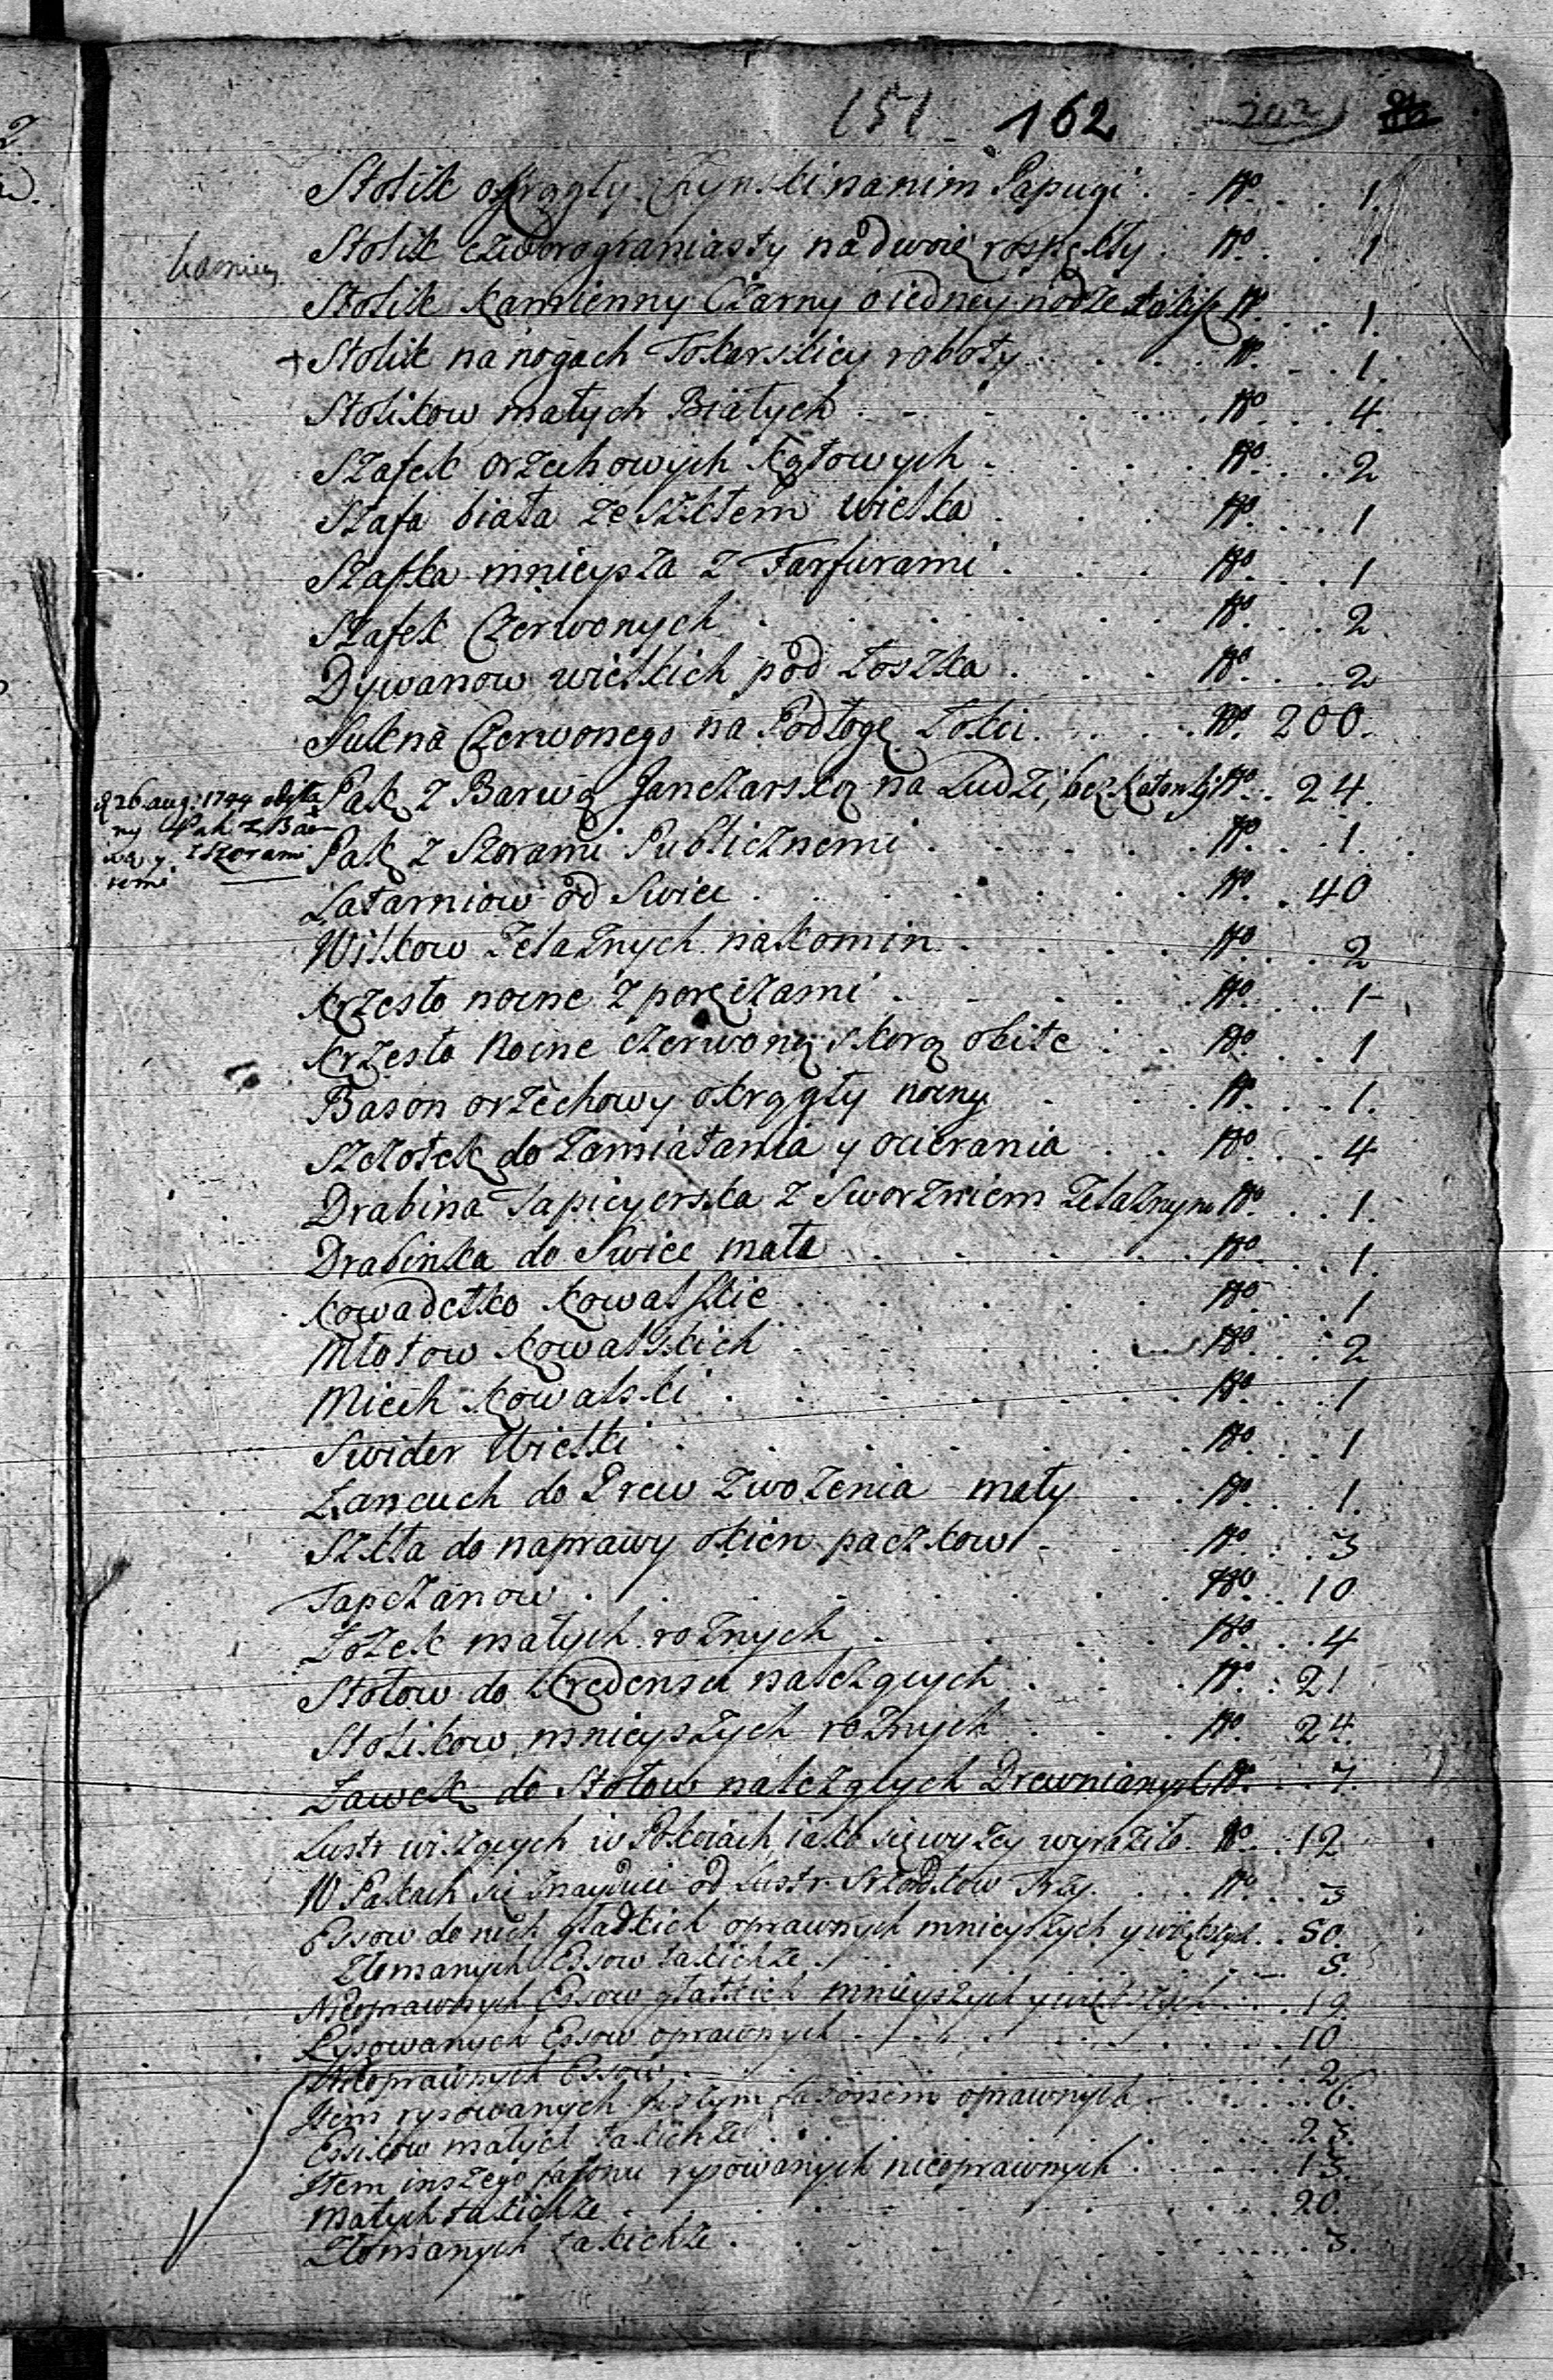 151 162 202
Stolik okrągły Chynski na nim Papugi . No . . 1.
Stolik czworograniasty na dwoie rospękły . No . . 1
Stolik Kamienny Czarny o iedney nodze No . . . 1.
+ Stolik na nogach Tokarskiey roboty . . . No . . . 1.
Stolikow małych Białych . . . No . . . 4.
Szafek orzechowych Kątowych . . . No . . . 2
Szafa biała ze Szkłem wielka . . . No . . . 1
Szafka mnieysza z Farfurami . . . No . . . 1
Szafek Czerwonych . . . No . . . 2
Dywanow wielkich pod Łoszka . . . No . . . 2
Sukna Czerwonego na Podłogę Łokci . . . No. 200.
26 aug: 1744
ny Pak z Bar
wą y z Szorami
Pak z Barwą Janczarską na Ludzi, bez No . . 24.
Pak z Szorami Publicznemi . . . No . . . 1.
Latarniow od Swiec . . . No . . 40
Wilkow Żelaznych na komin . . . No . . . 2
Krzesło nocne z poręczami . . . No . . . 1
Krzesło nocne czerwoną skorą obite . . No . . . 1
Bason orzechowy okrągły nocny . . . No . . . 1.
Szczotek do zamiatania y ocierania . . No . . . 4
Drabina Tapicyerska z Sworzniem Żelaznym No . . . 1.
Drabinka do Swiec mała . . . No . . . 1.
Kowadełko Kowalskie . . . No . . . 1
Młotow Kowalskich . . . No . . . 2
Miech Kowalski . . . No . . . 1
Swider Wielki . . . No . . . 1
Łancuch do Drew zwożenia mały . . No . . . 1.
Szkła do naprawy okien paczkow . . . No . . . 3
Tapczanow . . . No . . 10
Łożek małych rożnych . . . No . . . 4
Stołow do Kredensu należących . . . No . . 21
Stolikow mnieyszych rożnych . . . No . 24.
Ławek do Stołow należących Drewnianych No . . . 7.
Lustr wiszących w Pokoiach, iako się wyżey wyraziło. No . . 12
W Pakach się znayduie od Lustr Szrodkow Trzy . . . No . . . 3
Essow do nich gładkich oprawnych mnieyszych y większych . . 50.
Złomanych Essow takichże . . . 8.
Nieoprawnych Essow gładkich mnieyszych y większych . . . 19.
Rysowanych Essow oprawnych . . . 10
Nieoprawnych Essow . . . 2.
Item rysowanych inszym fasonem oprawnych . . . 6.
Essikow małych takichże . . . 23.
Item inszego fasonu rysowanych nieoprawnych . . . 13.
Małych takichże . . . 20.
Złomanych takichże . . . 3.